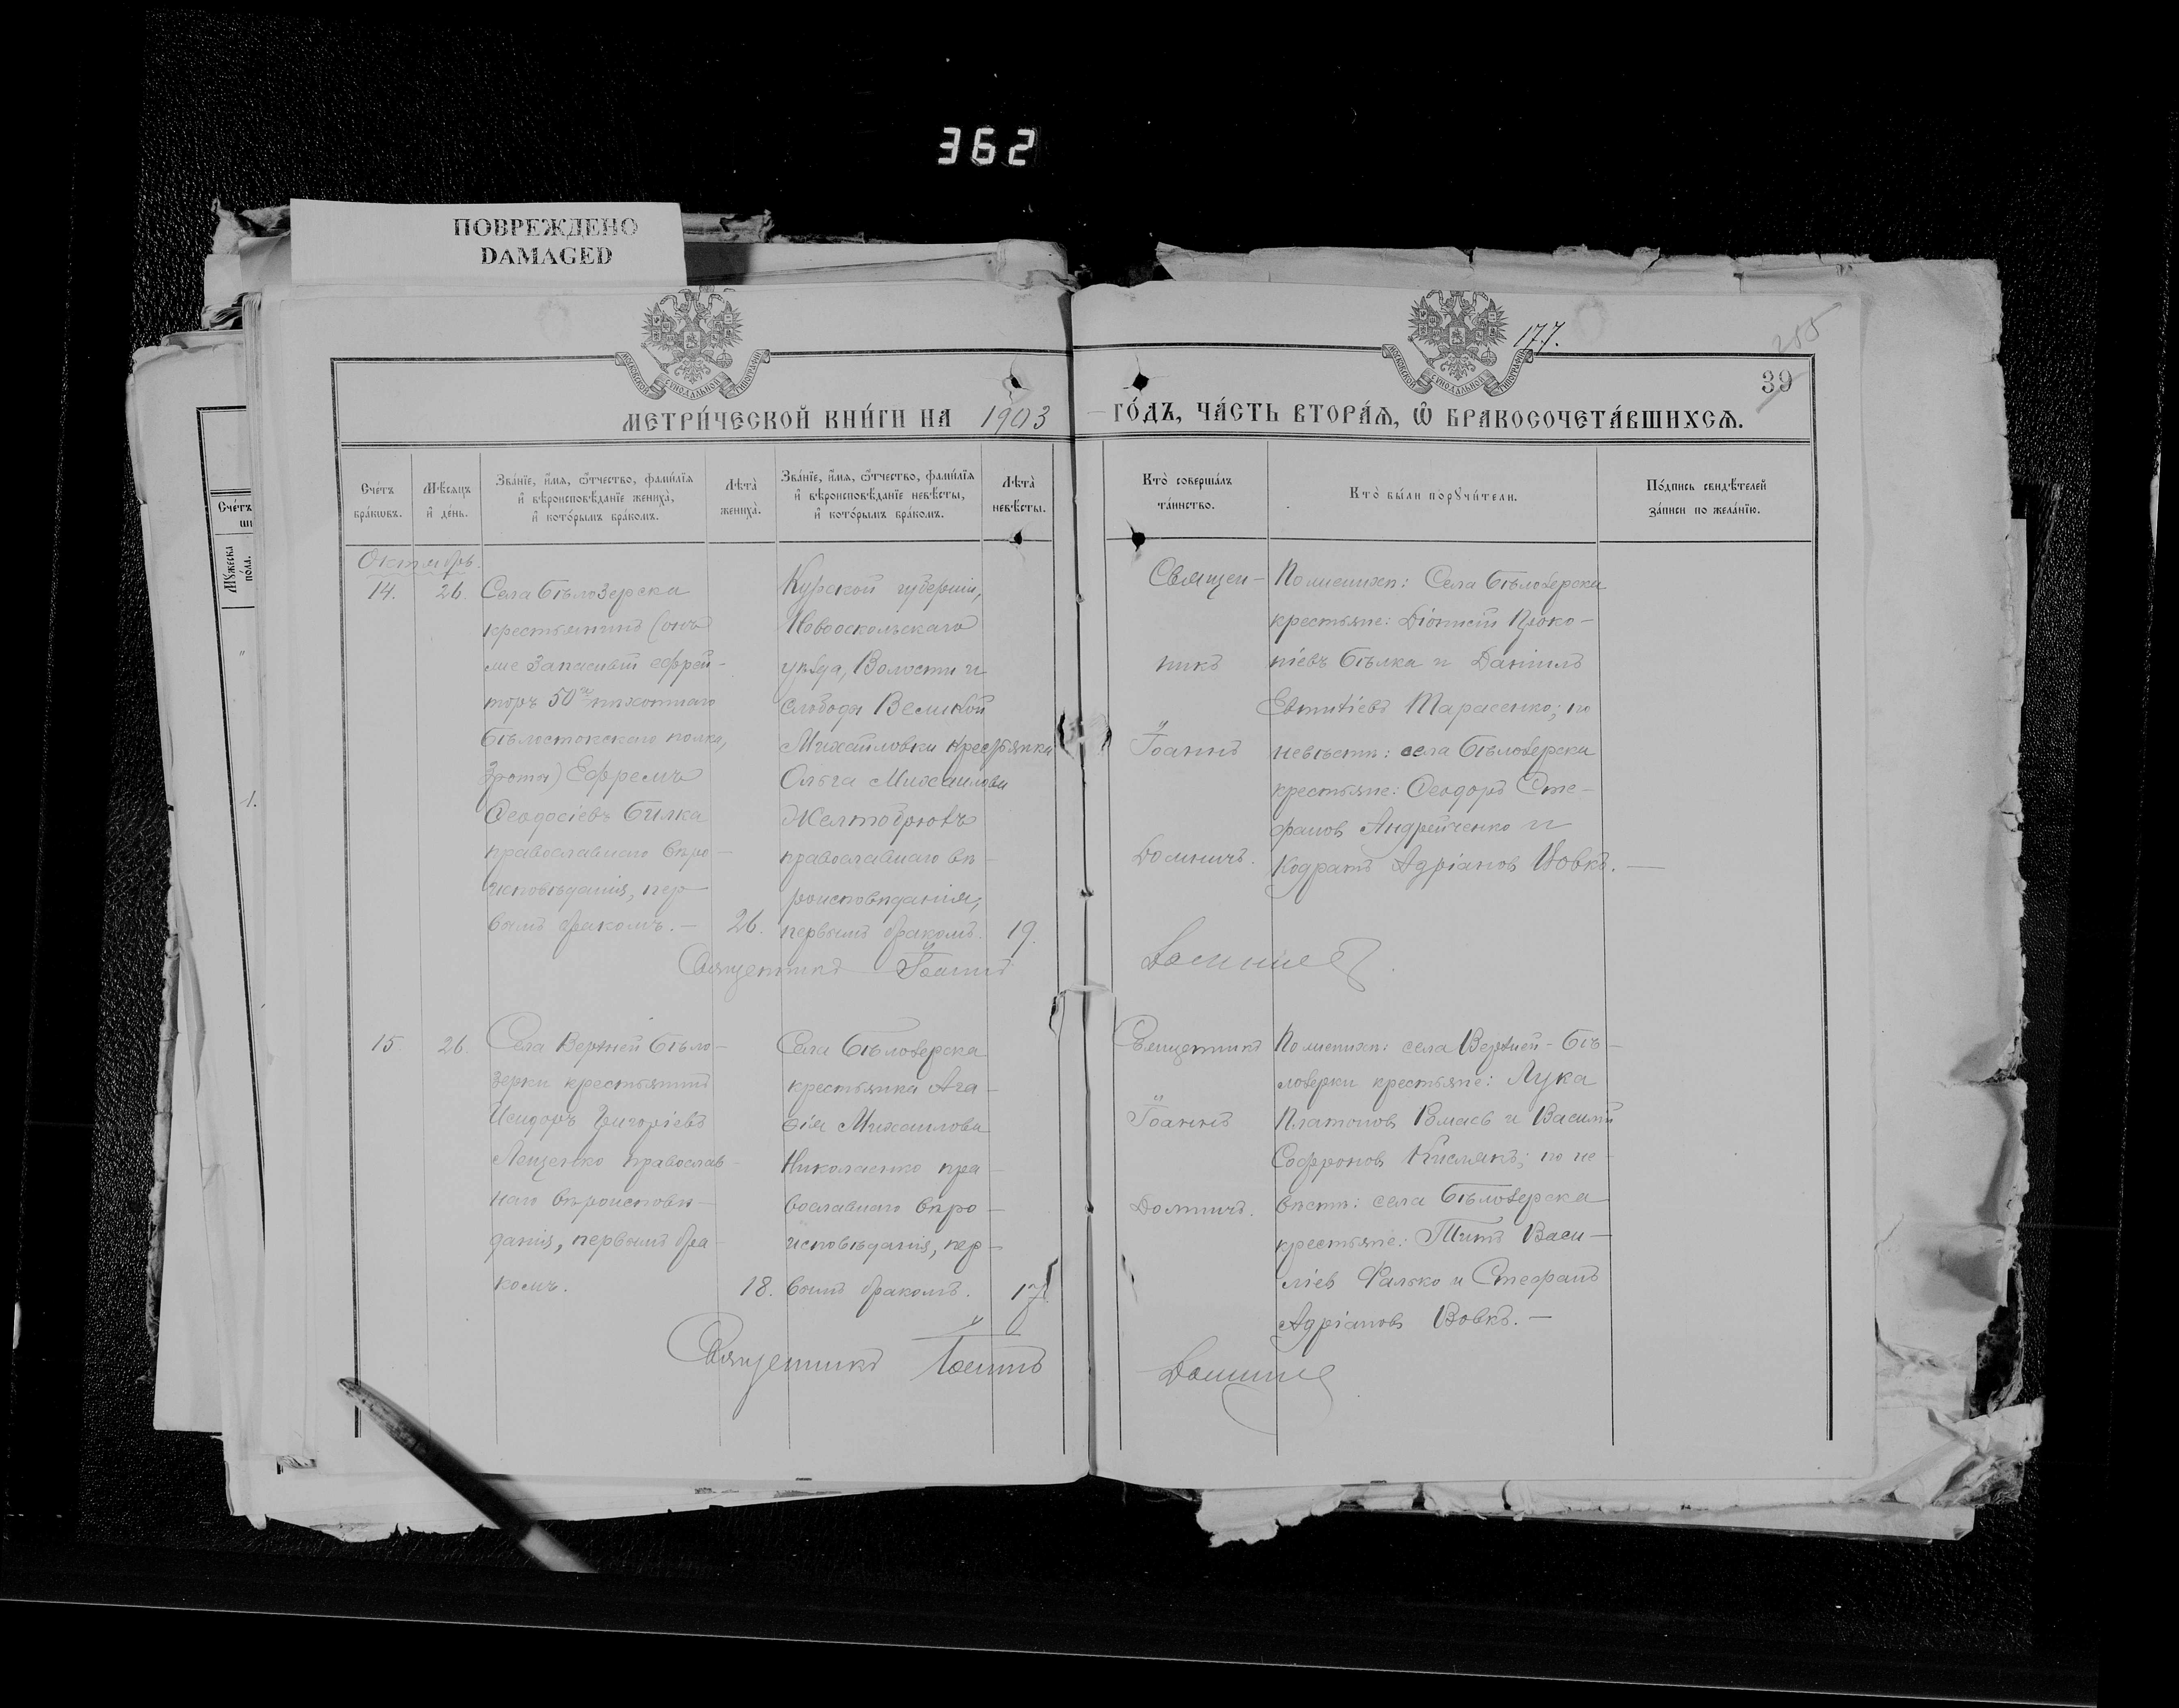 362
ПОВРЕЖДЕНО
DAMAGED
177.
255
39
МОСКОВСКОЙ СУНОДАЛЬНОЙ ТИПОГРАФІИ
МОСКОВСКОЙ СУНОДАЛЬНОЙ ТИПОГРАФІИ
МЕТРИ́ЧЕСКОЙ КНИ́ГИ НА 1903 ГО́ДЪ, ЧА́СТЬ ВТОРА́Я, Ѽ БРАКОСОЧЕТА́ВШИХСѦ.
Сче́тъ
бра́кѡвъ.
Мѣ́сяцъ
и҆ де́нь.
Зва́нїе, и҆́мя, ѻ҆́тчество, фами́лїя
и҆ вѣроисповѣ́данїе жениха̀,
и҆ кото́рымъ бра́комъ.
Лѣта̀
жениха̀.
Зва́нїе, и҆́мя, ѻ҆́тчество, фами́лїя
и҆ вѣроисповѣ́данїе невѣ́сты,
и҆ кото́рымъ бра́комъ.
Лѣта̀
невѣ́сты.
Кто̀ соверша́лъ
та́инство.
Кто̀ бы́ли порꙋчи́тели.
По́дпись свидѣ́телей
за́писи по жела́нїю.
Сче́тъ
Мꙋ́жеска
по́ла.
1.
Октябрь.
14.
26.
Села Бѣлозерска
крестьянинъ (онъ
же запасный ефрей-
торъ 50го пѣхотнаго
Бѣлостокскаго полка,
3 роты) Ефремъ
Ѳеодосіевъ Билка
православнаго вѣро-
исповѣданія, пер-
вымъ бракомъ. —
26.
Курской губерніи,
Новооскольскаго
уѣзда, Волости и
слободы Великой
Михайловки крестьянка
Ольга Михаилова
православнаго вѣ-
роисповѣданія,
первымъ бракомъ.
19.
Священ-
никъ
Іоаннъ
Домничъ.
По женихѣ: Села Бѣлозерска
крестьяне: Діонисій Проко-
піевъ Бѣлка и Даніилъ
Евтихіевъ Тарасенко; по
невѣстѣ: села Бѣлозерска
крестьяне: Ѳеодоръ Сте-
фановъ Андрейченко и
Кодратъ Адріановъ Вовкъ. —
Священникъ Іоаннъ Домничъ.
15.
26.
Села Верхней Бѣло-
зерки крестьянинъ
Исидоръ Григоріевъ
Лещенко православ-
наго вѣроисповѣ-
данія, первымъ бра-
комъ.
18.
Села Бѣлозерска
крестьянка Ага-
ѳія Михаилова
Николаенко пра-
вославнаго вѣро-
исповѣданія, пер-
вымъ бракомъ.
17.
Священникъ
Іоаннъ
Домничъ.
По женихѣ: села Верхней-Бѣ-
лозерки крестьяне: Лука
Платоновъ и Василій
Софроновъ Кислякъ; по не-
вѣстѣ: села Бѣлозерска
крестьяне: Титъ Васи-
ліевъ Фалько и Стефанъ
Адріановъ Вовкъ. —
Священникъ Іоаннъ Домничъ